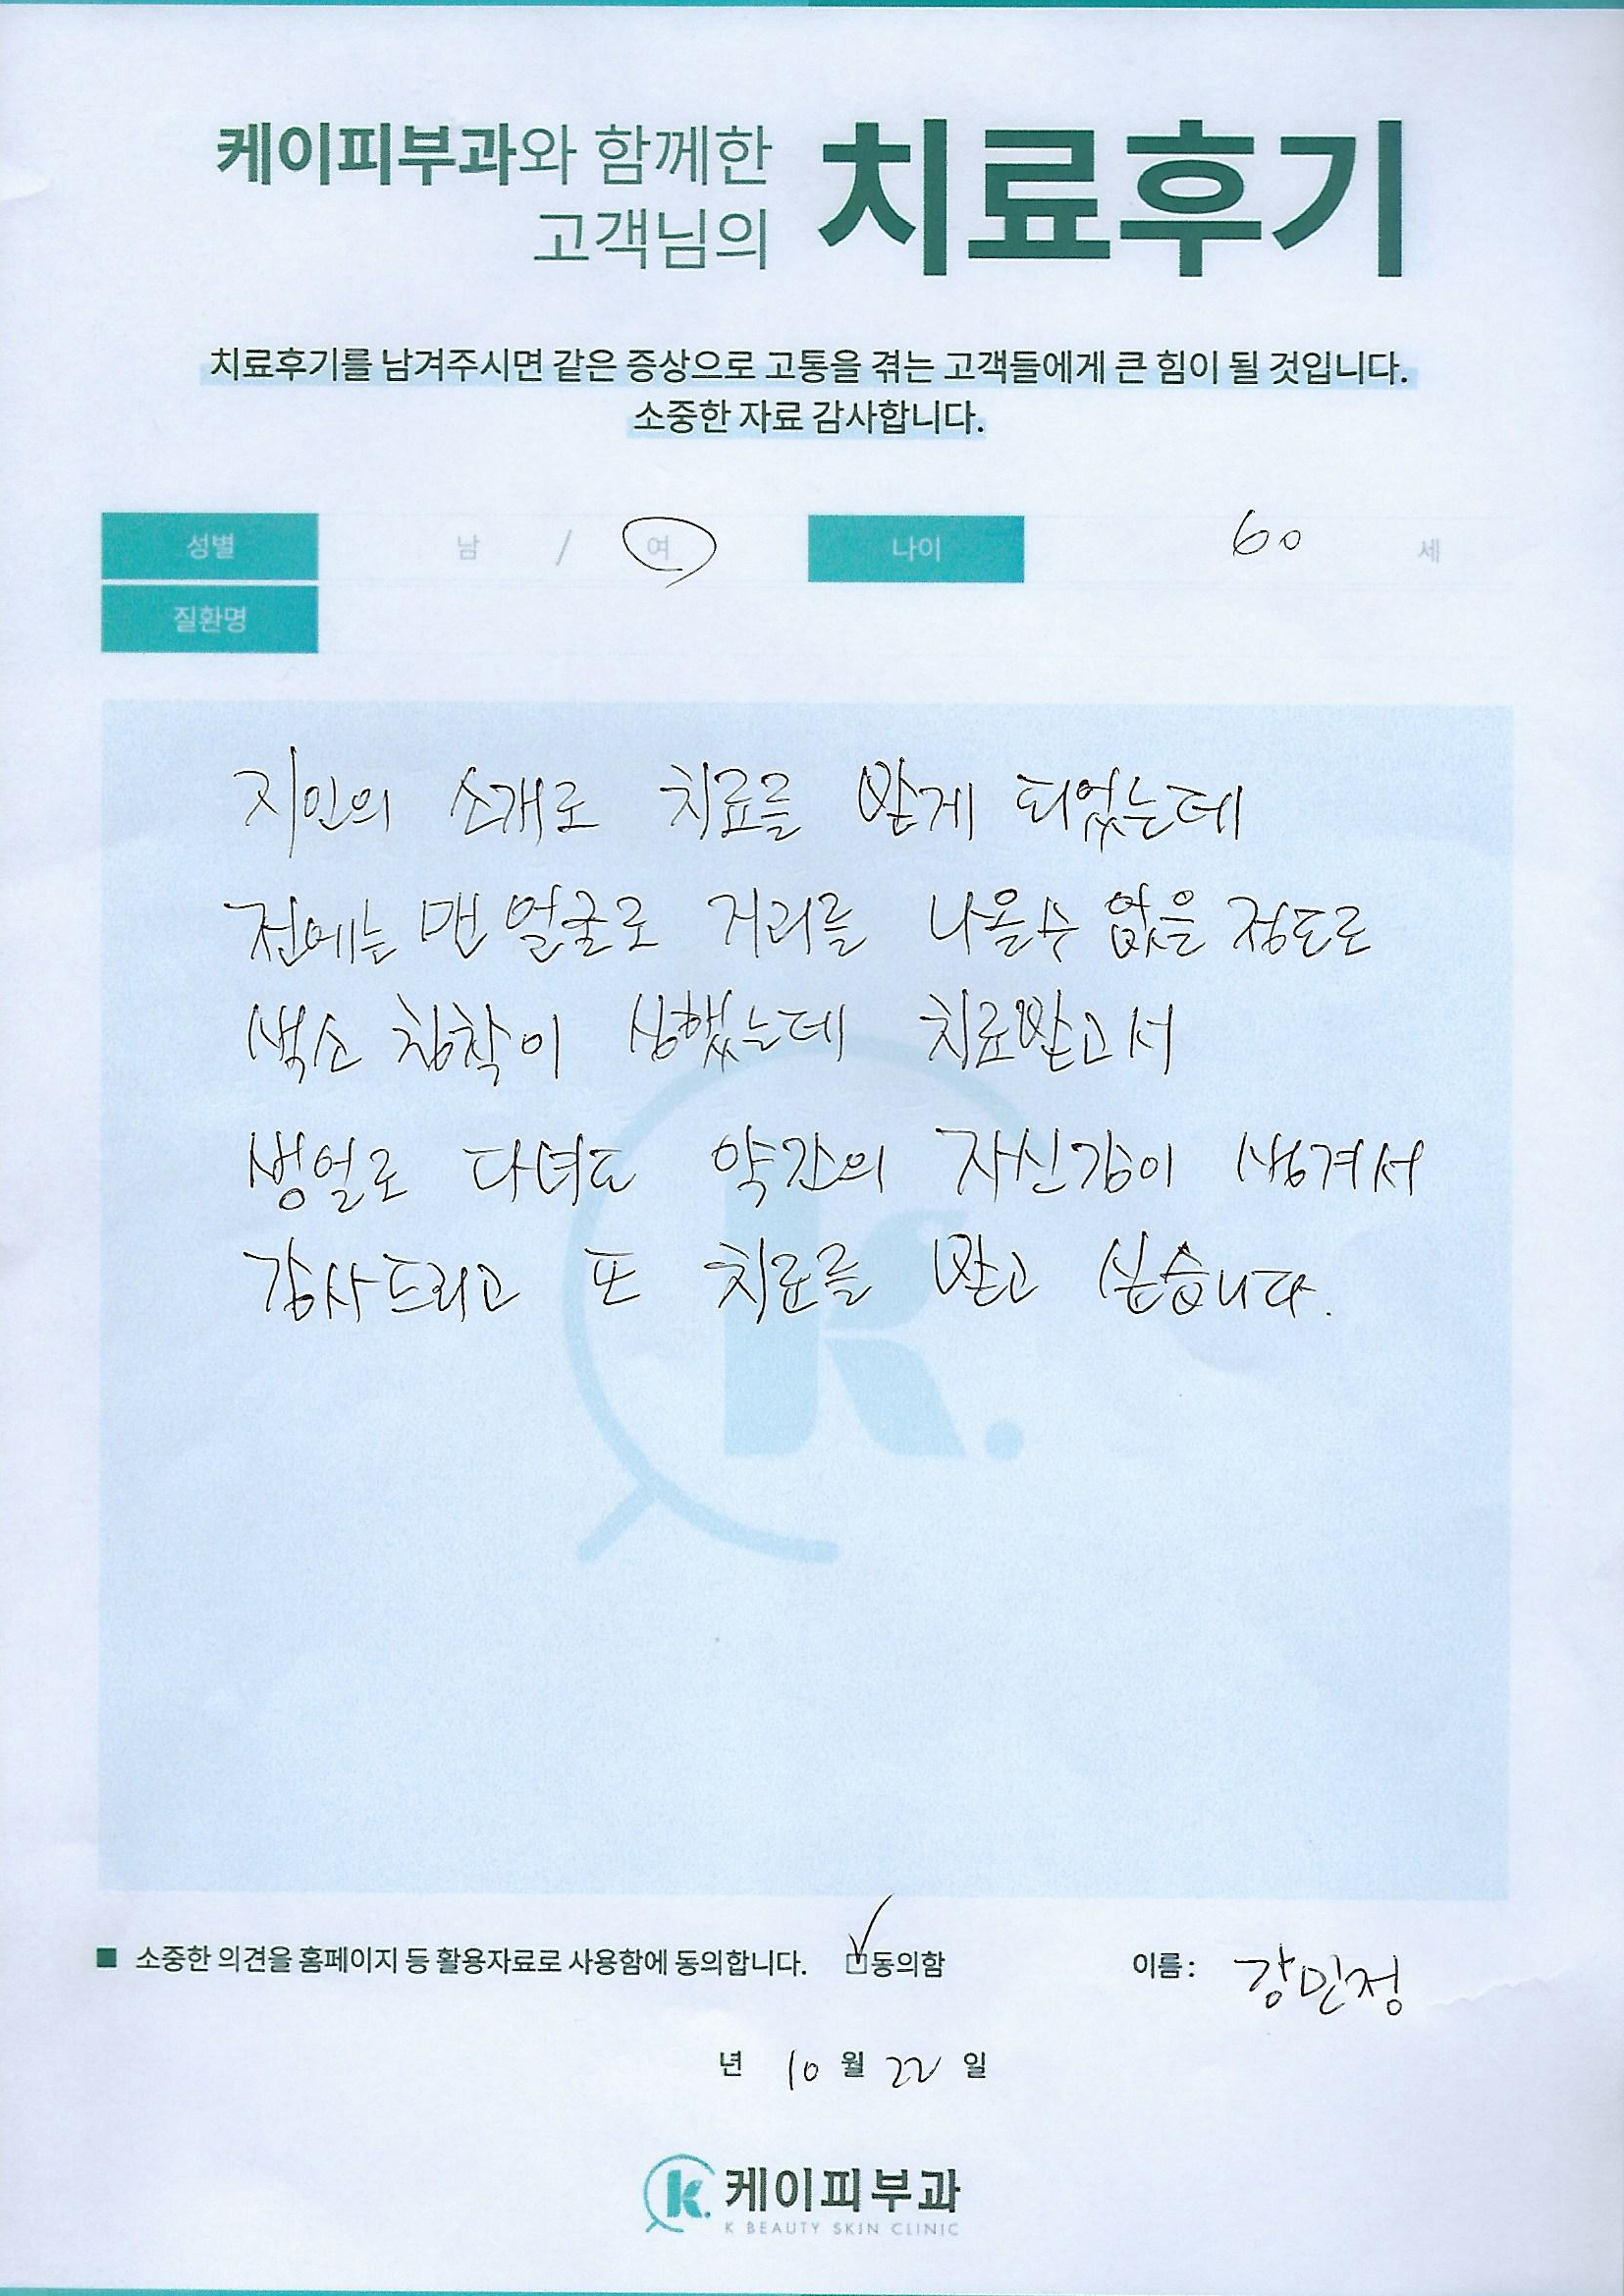 케이피부과와 함께한
고객님의
치료후기
치료후기를 남겨주시면 같은 증상으로 고통을 겪는 고객들에게 큰 힘이 될 것입니다.
소중한 자료 감사합니다.
성별 남 / 여 나이 60 세
질환명
지인의 소개로 치료를 받게 되었는데
전에는 맨 얼굴로 거리를 나올수 없을 정도로
색소 침착이 심했는데 치료받고서
생얼로 다녀도 약간의 자신감이 생겨서
감사드리고 또 치료를 받고 싶습니다.
K.
■ 소중한 의견을 홈페이지 등 활용자료로 사용함에 동의합니다. □동의함 이름: 강민정
년 10 월 22 일
k. 케이피부과
K BEAUTY SKIN CLINIC